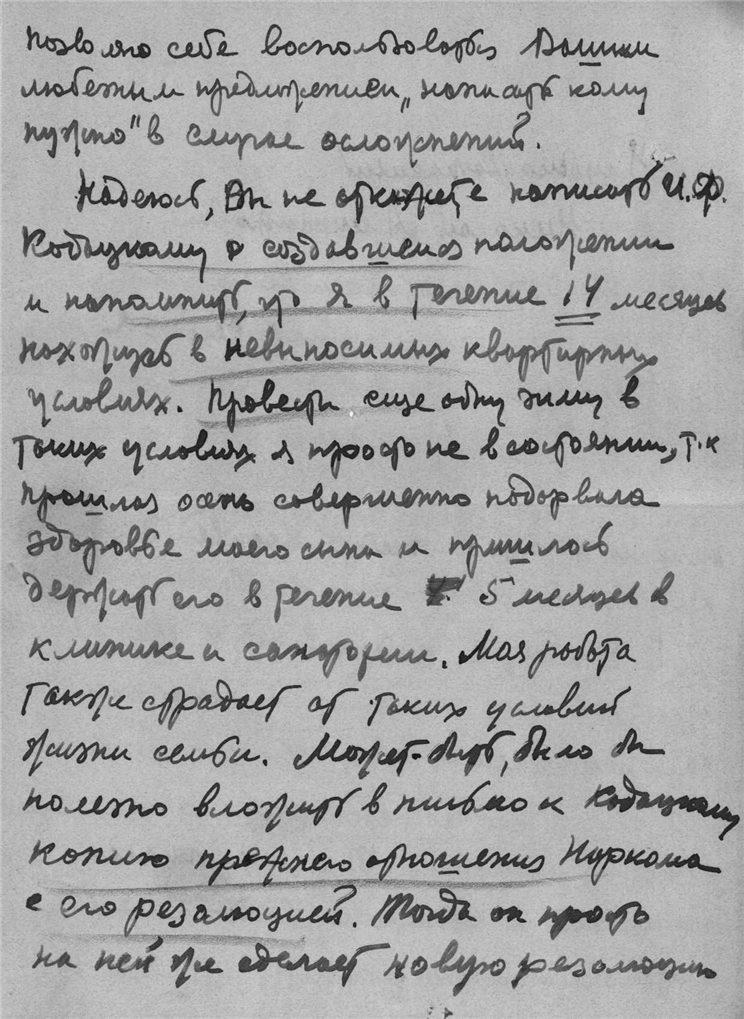 позволяю себе воспользоваться Вашим
любезным предложением „написать кому
нужно" в случае осложнений.
Надеюсь, Вы не откажете написать И. Ф.
Кодацкому о создавшемся положении
и напомнить, что я в течение 14 месяцев
нахожусь в невыносимых квартирных
условиях. Провести еще одну зиму в
таких условиях я просто не в состоянии, т.к
прошлая осень совершенно подорвала
здоровье моего сына и пришлось
держать его в течение 5 месяцев в
клинике и санатории. Моя работа
также страдает от таких условий
жизни семьи. Может-быть, было бы
полезно вложить в письмо к Кодацкому
копию прежнего отношения Наркома
с его резолюцией. Тогда он просто
на ней же сделает новую резолюцию